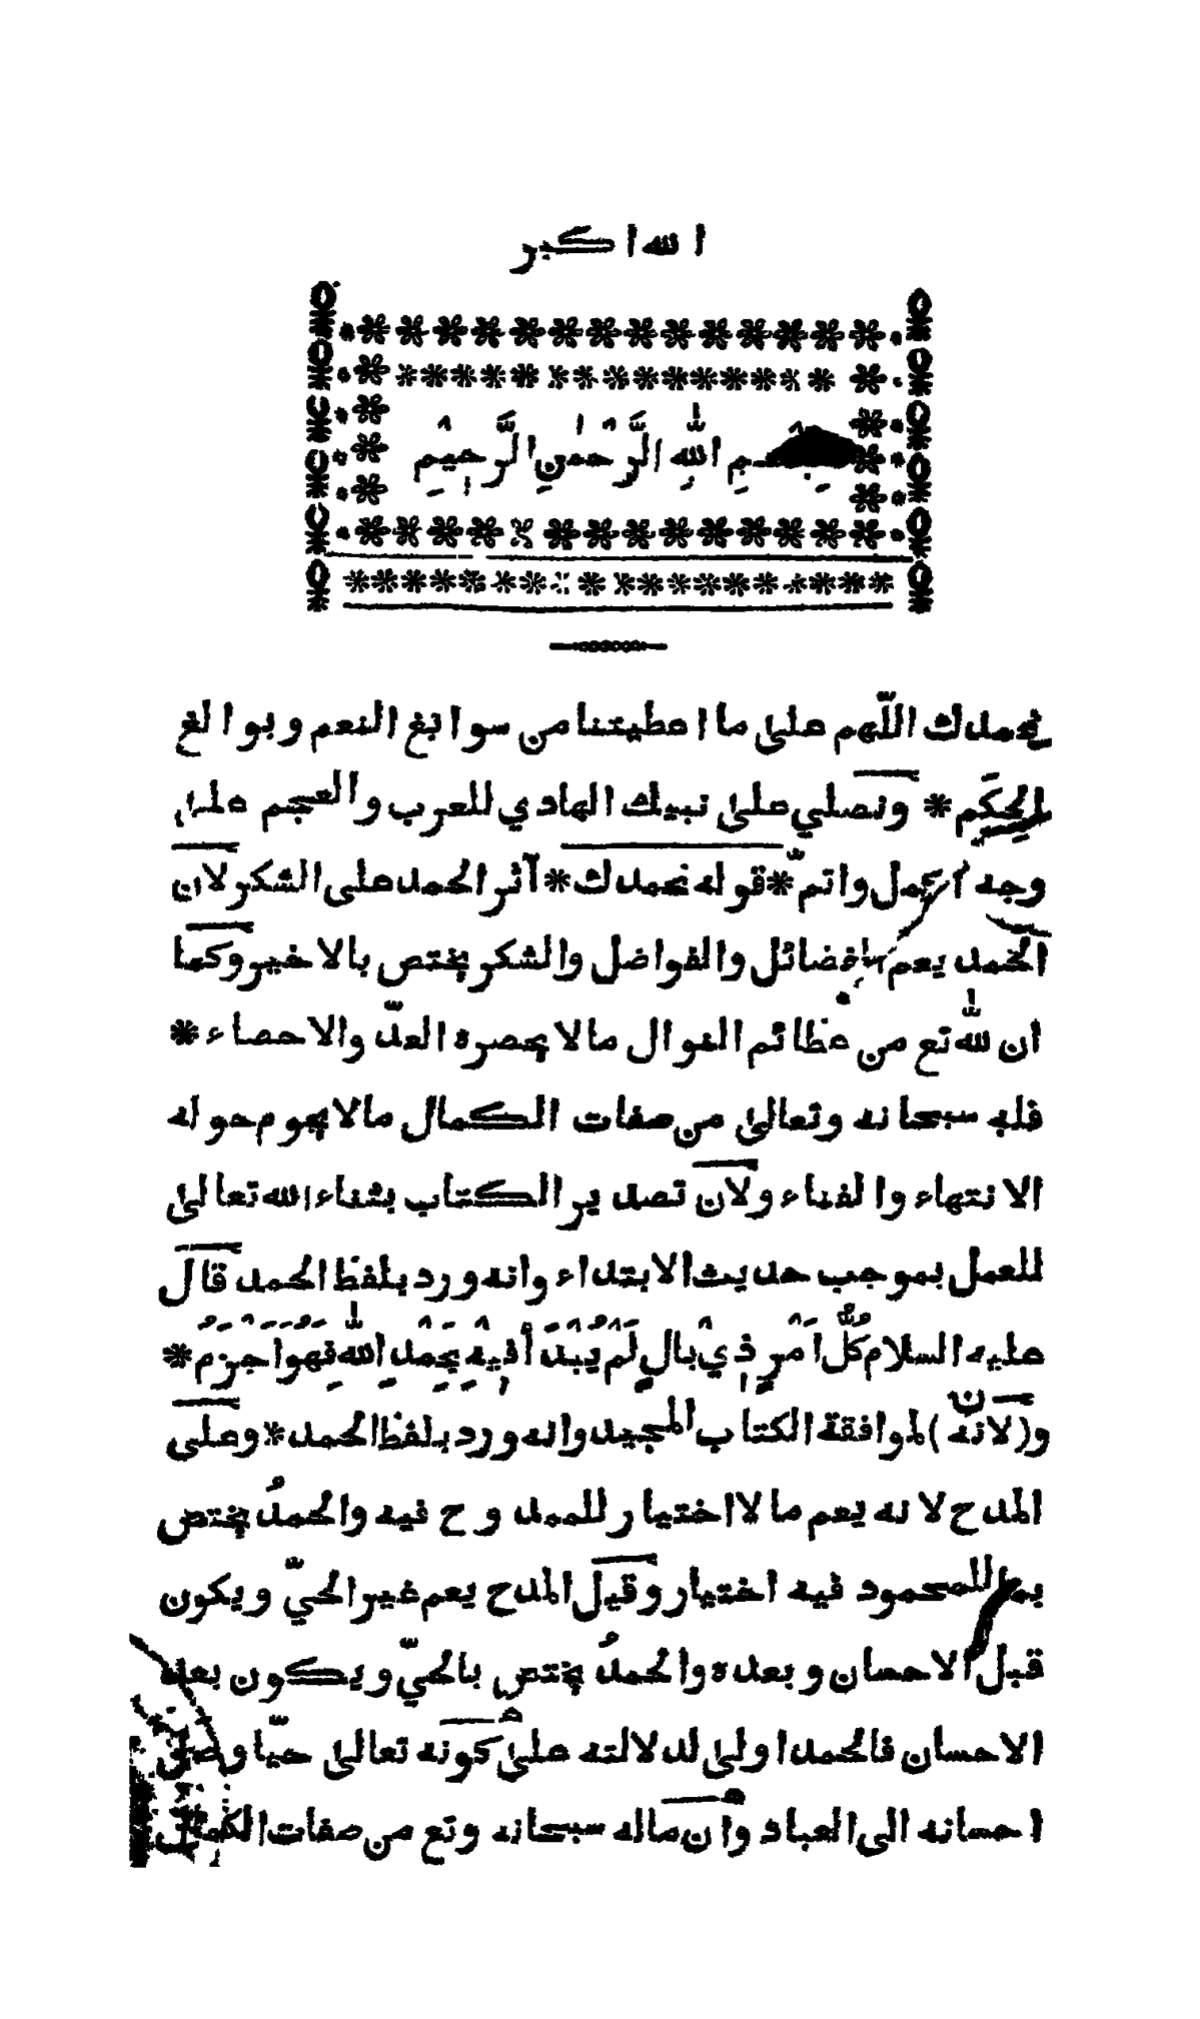 الله اكبر
بِسْمِ اللّٰهِ الرَّحْمٰنِ الرَّحِيْمِ
نحمدك اللّهم على ما اعطيتنا من سوابغ النعم وبوالغ
الحِكَم * ونصلي على نبيك الهادي للعرب والعجم على
وجه اجمل واتمّ * قوله نحمدك * آثر الحمد على الشكر لان
الحمد يعم الفضائل والفواضل والشكر يختص بالاخير وكما
ان لله تع من عظائم النوال مالا يحصره العدّ والاحصاء *
فله سبحانه وتعالى من صفات الكمال مالا يحوم حوله
الانتهاء والفناء ولان تصدير الكتاب بثناء الله تعالى
للعمل بموجب حديث الابتداء وانه ورد بلفظ الحمد قال
عليه السلام كُلُّ اَمْرٍ ذِيْ بَالٍ لَمْ يُبْدَأْ فِيْهِ بِحَمْدِ اللّٰهِ فَهُوَ اَجْزَمُ *
و(لانه) لموافقة الكتاب المجيد وانه ورد بلفظ الحمد * وعلى
المدح لانه يعم مالا اختيار للممدوح فيه والحمدُ يختص
بما للمحمود فيه اختيار وقيل المدح يعم غير الحيّ ويكون
قبل الاحسان وبعده والحمدُ يختص بالحيّ ويكون بعد
الاحسان فالحمد اولى لدلالته على كونه تعالى حيّا
احسانه الى العباد وان ماله سبحانه وتع من صفات الكمال